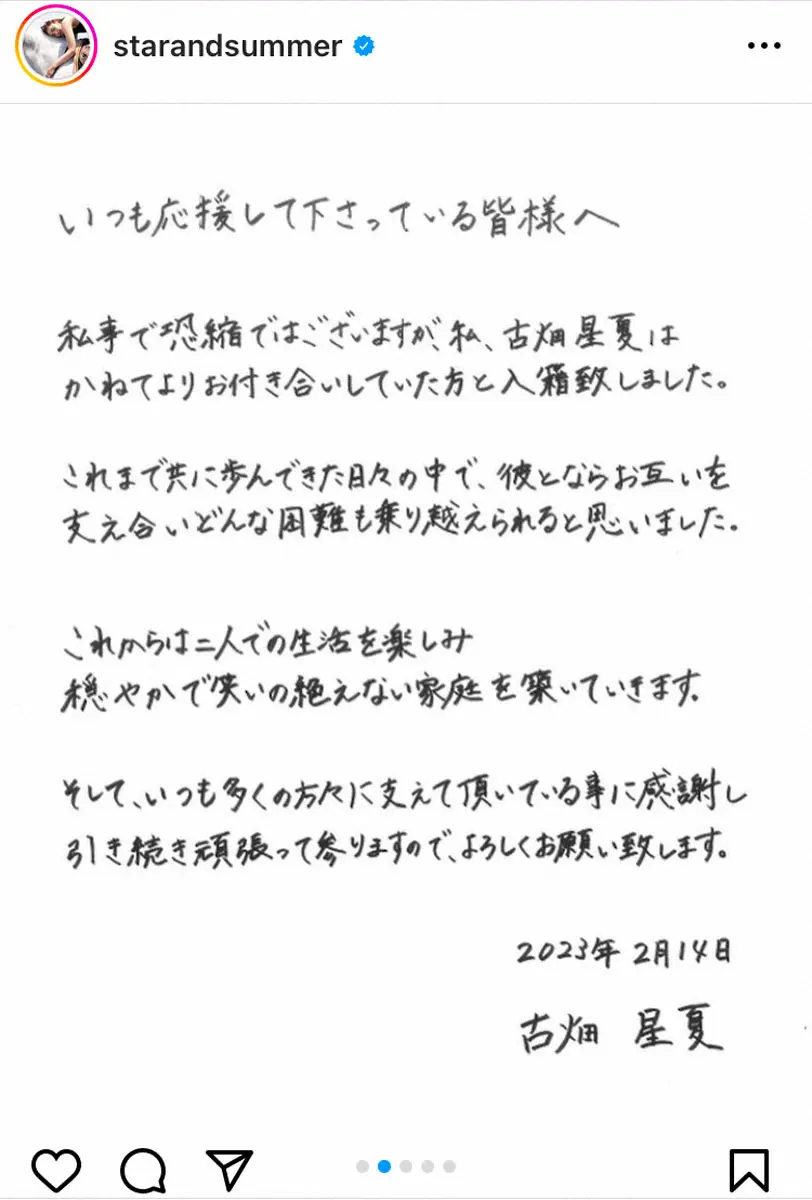 starandsummer
いつも応援して下さっている皆様へ
私事で恐縮ではございますが、私、古畑星夏は
かねてよりお付き合いしていた方と入籍致しました。
これまで共に歩んできた日々の中で、彼とならお互いを
支え合いどんな困難も乗り越えられると思いました。
これからは二人での生活を楽しみ
穏やかで笑いの絶えない家庭を築いていきます。
そして、いつも多くの方々に支えて頂いている事に感謝し
引き続き頑張って参りますので、よろしくお願い致します。
2023年 2月14日
古畑 星夏